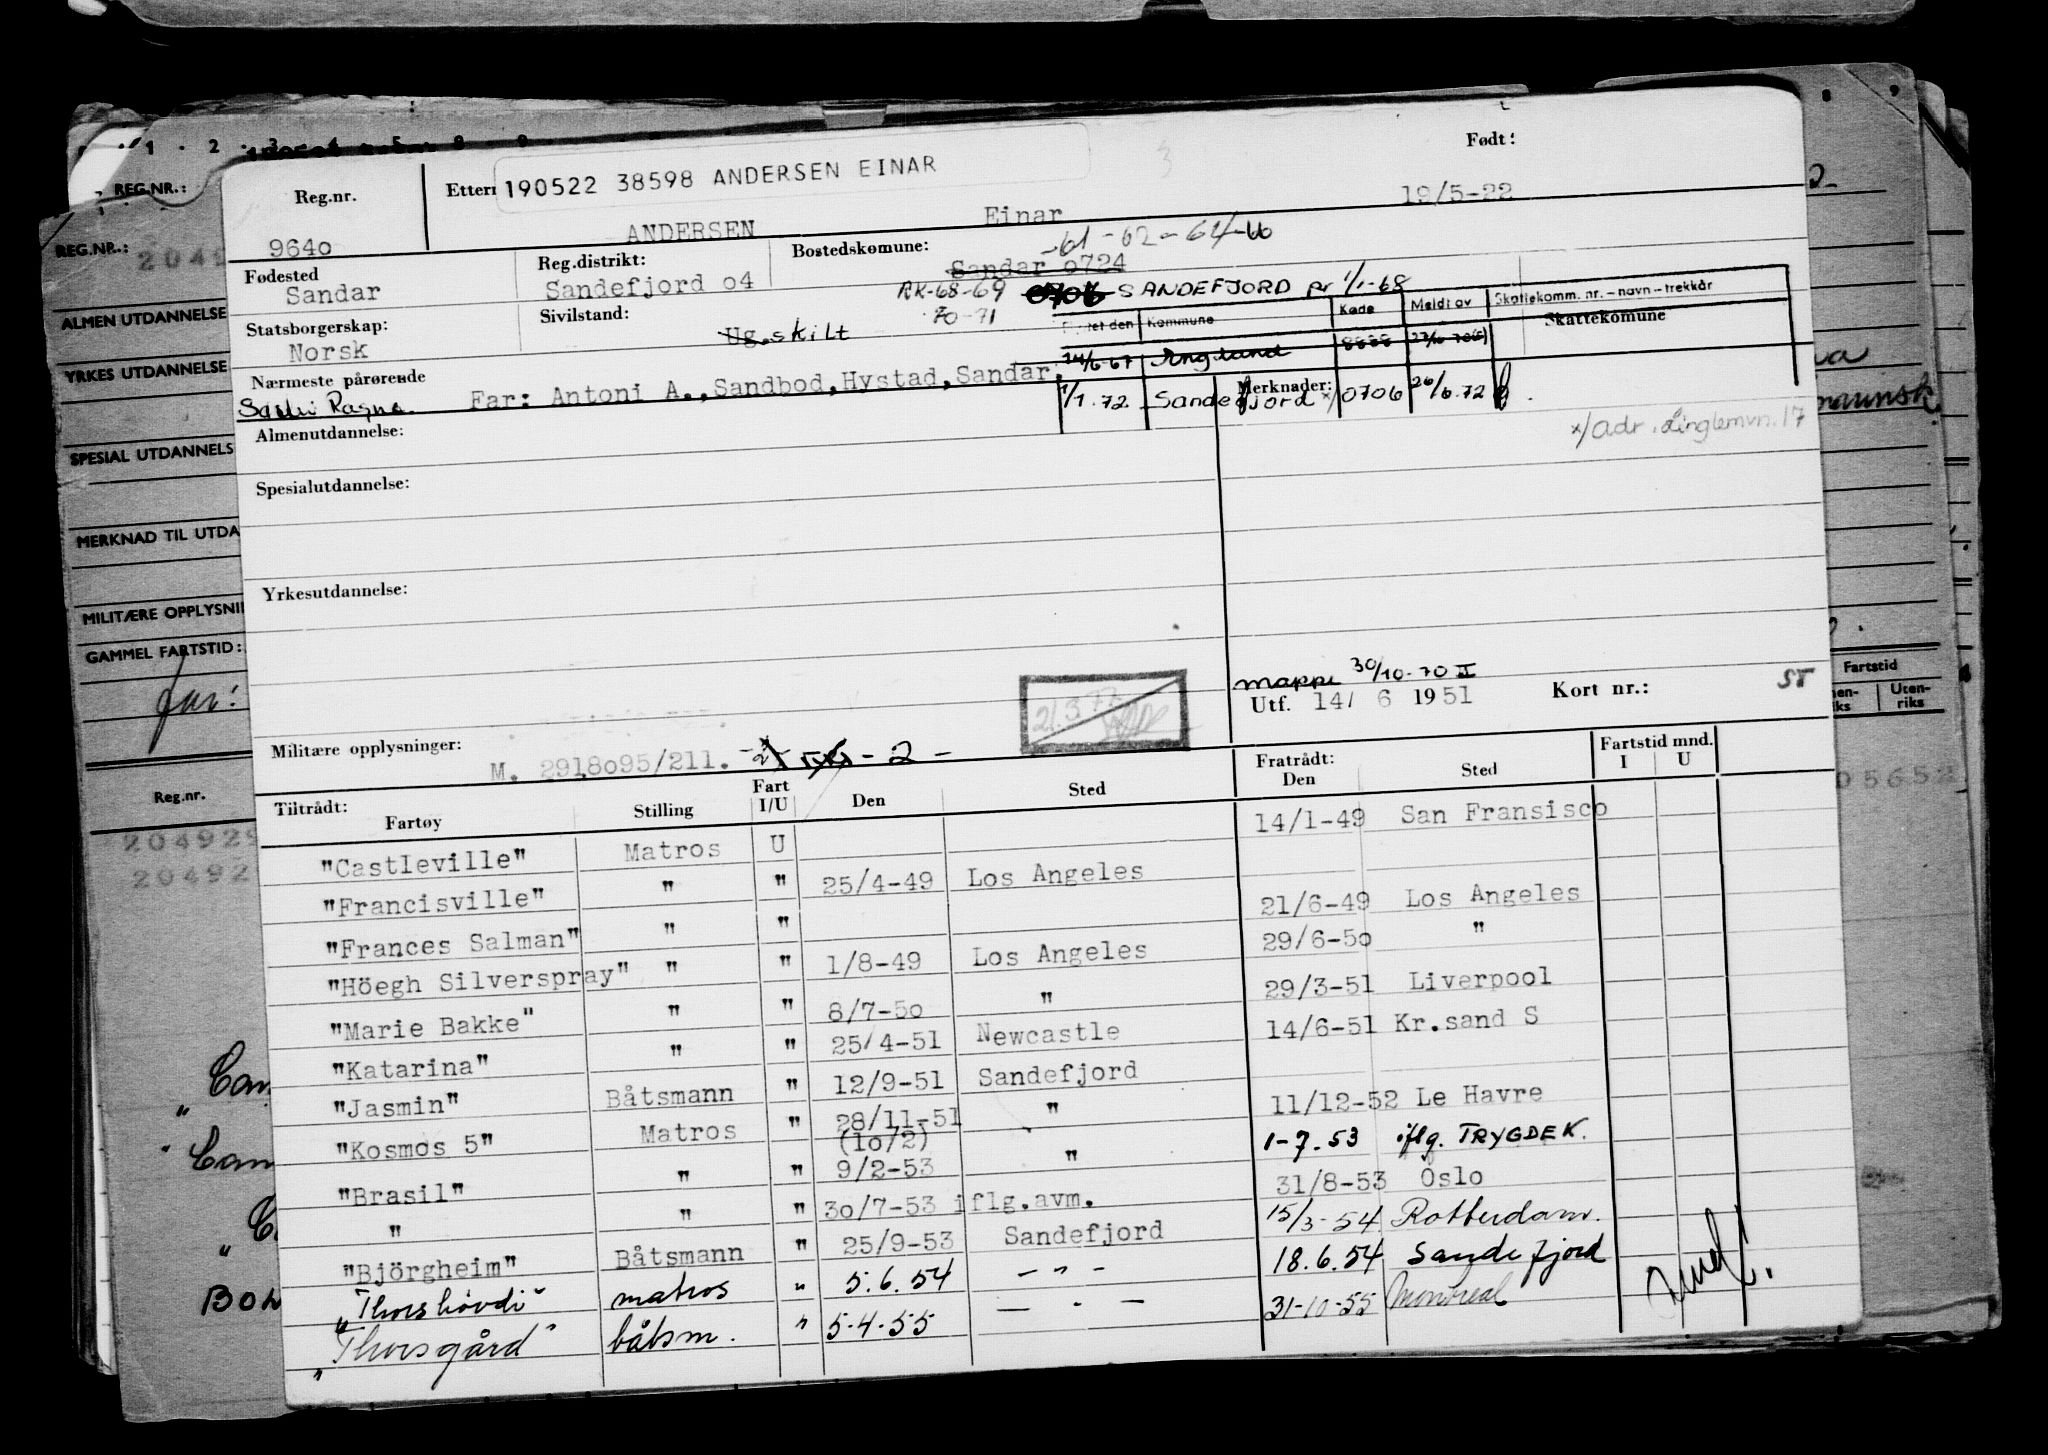 1 . 2 . 3 4 . 5 . 8 . 9
8 9
REG.NR.:
REG.NR.:
2049
ALMEN UTDANNELSE
YRKES UTDANNELSE
SPESIAL UTDANNELS
MERKNAD TIL UTDA
MILITÆRE OPPLYSNI
GAMMEL FARTSTID:
Reg.nr.
204929
20492
Fartstid
Uten-
riks
05652
Reg.nr.
Ettern
190522 38598 ANDERSEN EINAR
3
Født:
9640
ANDERSEN
Einar
19/5-22
Fødested
Sandar
Reg.distrikt:
Sandefjord o4
Bostedskomune:
-61-62-64-66
Sandar o724
RK-68-69
70-71
0706 SANDEFJORD pr 1/1-68
Statsborgerskap:
Norsk
Sivilstand:
Ug.skilt
Kommune
Kode
Meldt av
Skattekomm. nr. – navn – trekkår
Skattekomune
14/6-67 England 8888
Nærmeste pårørende
Far: Antoni A.,Sandbod,Hystad,Sandar.
1/1.72. Sandefjord x/ 0706 20/6.72
Merknader:
x/ Adr.
Almenutdannelse:
Spesialutdannelse:
Yrkesutdannelse:
mappe 30/10-70 II
Utf. 14/ 6 1951
Kort nr.:
ST
Militære opplysninger:
M. 2918o95/211.
- 2 -
Tiltrådt:
Fartøy
Stilling
Fart
I/U
Den
Sted
Fratrådt:
Den
Sted
Fartstid mnd.
I U
"Castleville" Matros U 14/1-49 San Fransisco
"Francisville" " " 25/4-49 Los Angeles
"Frances Salman" " " 21/6-49 Los Angeles
"Höegh Silverspray" " " 1/8-49 Los Angeles 29/6-5o "
"Marie Bakke" " " 8/7-5o " 29/3-51 Liverpool
"Katarina" " " 25/4-51 Newcastle 14/6-51 Kr.sand S
"Jasmin" Båtsmann " 12/9-51 Sandefjord
"Kosmos 5" Matros " 28/11-51 " 11/12-52 Le Havre
(1o/2)
"Brasil" " " 9/2-53 " 1-7.53 iflg. TRYGDEK.
" " " 3o/7-53 iflg.avm. 31/8-53 Oslo
"Björgheim" Båtsmann " 25/9-53 Sandefjord 15/3-54 Rotterdam.
"Thorshövdi" matros " 5.6.54 - " - 18.6.54 Sandefjord
"Thorsgård" båtsm. " 5.4.55 - " - 31-10-55 Montreal